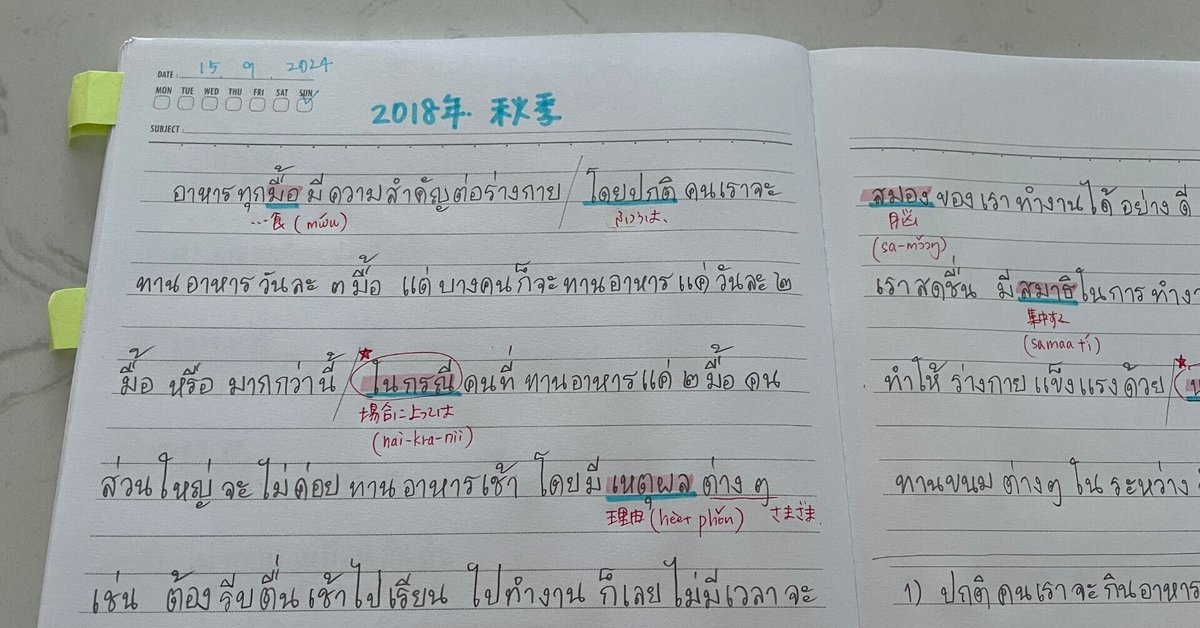 DATE: 15 9 2024
MON TUE WED THU FRI SAT SUN
2018年 秋季
SUBJECT:
อาหารทุกมื้อมีความสำคัญต่อร่างกาย / โดยปกติ คนเราจะ
…食 (mʉ́ʉ) ふつうは、
ทานอาหารวันละ ๓ มื้อ แต่บางคนก็จะทานอาหารแค่วันละ ๒
มื้อ หรือ มากกว่านี้ / ★ ในกรณี คนที่ทานอาหารแค่ ๒ มื้อ คน
場合によっては
(nai-kra-nii)
ส่วนใหญ่จะไม่ค่อยทานอาหารเช้า โดยมีเหตุผลต่างๆ
理由 (hèet phǒn) さまざま
เช่น ต้องรีบตื่นเช้าไปเรียน ไปทำงาน ก็เลยไม่มีเวลาจะ
สมองของเราทำงานได้อย่างดี
脳
(sa-mɔ̌ɔŋ)
เราสดชื่น มีสมาธิในการทำงา
集中する
(samaa tí)
ทำให้ร่างกายแข็งแรงด้วย / ★
ทานขนมต่างๆ ในระหว่าง
1) ปกติคนเราจะกินอาหาร